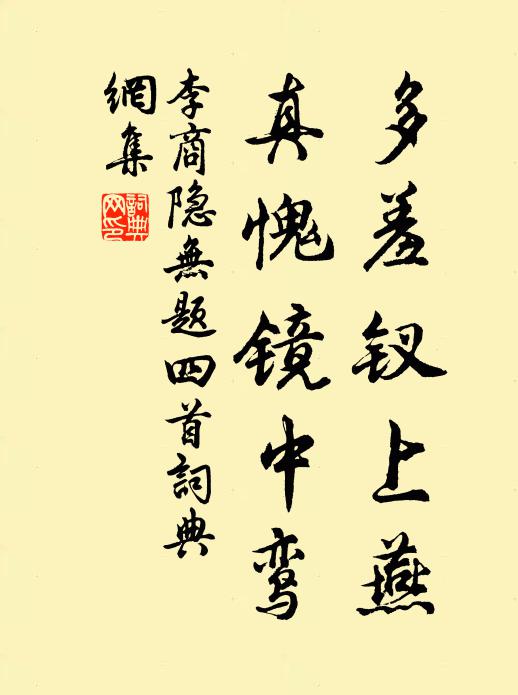 多羞钗上燕
真愧镜中鸾
李商隐無题四首詞典
網集
詞典
网印